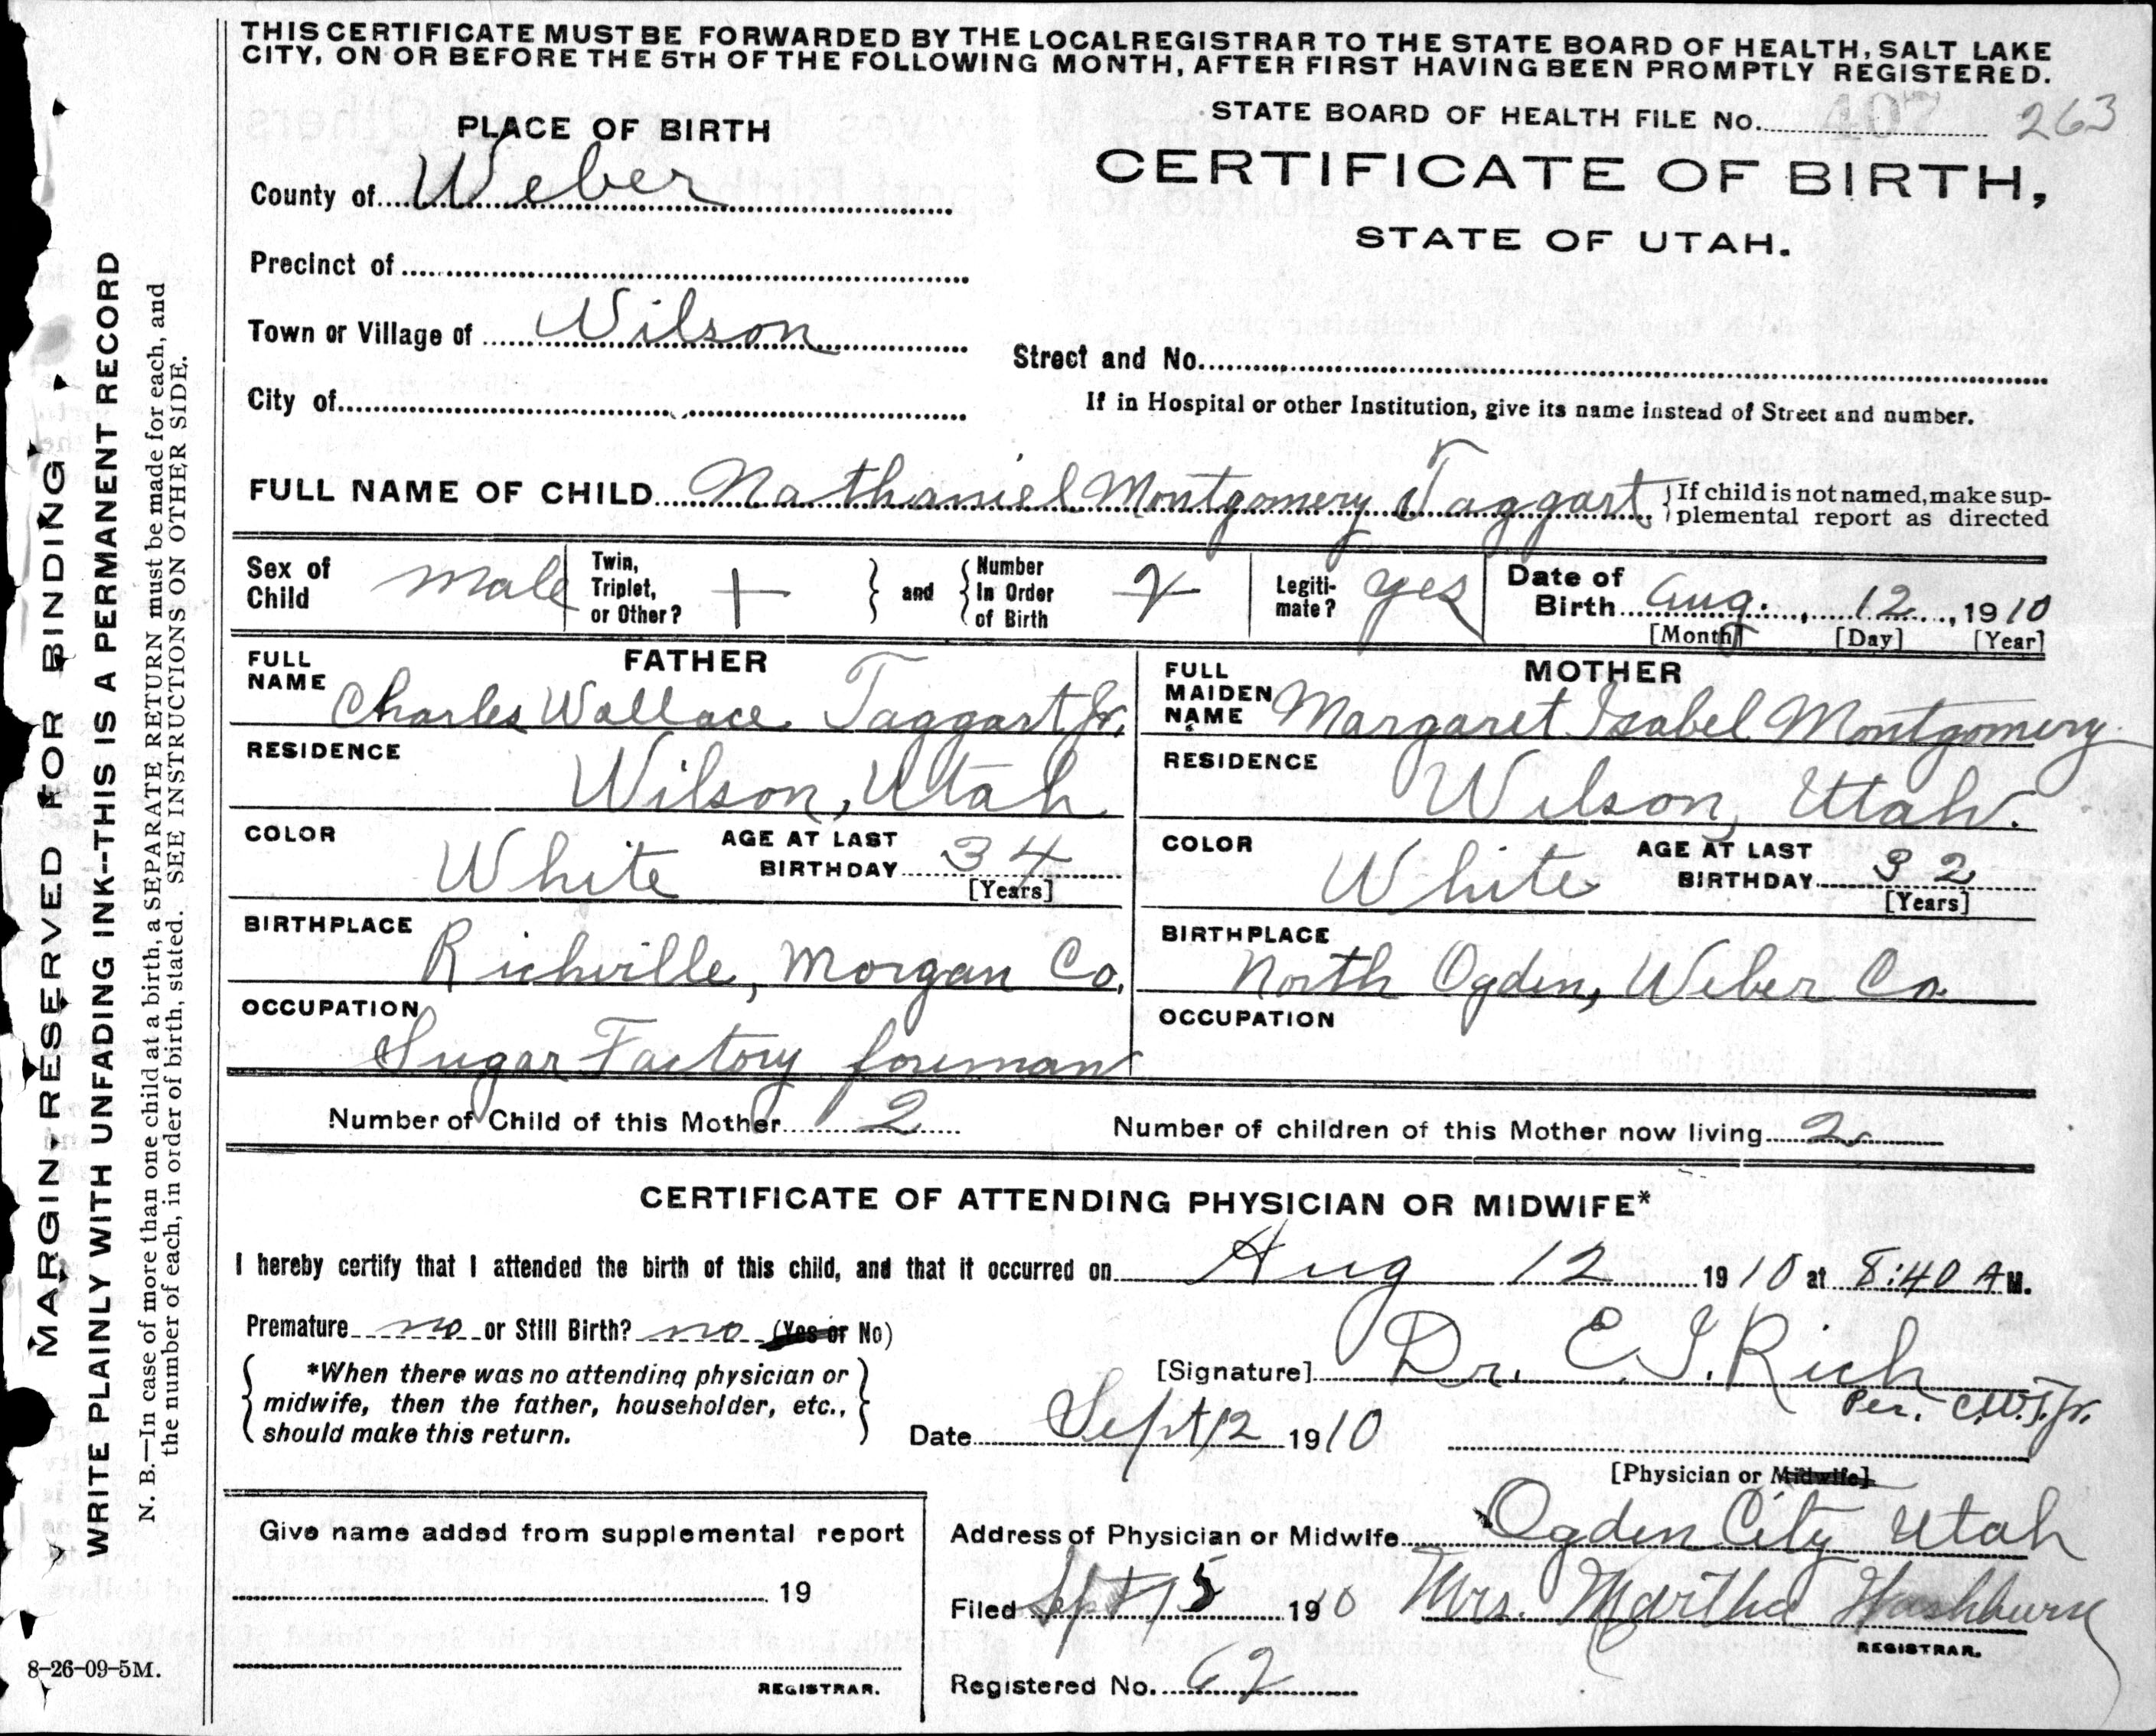 THIS CERTIFICATE MUST BE FORWARDED BY THE LOCAL REGISTRAR TO THE STATE BOARD OF HEALTH, SALT LAKE
CITY, ON OR BEFORE THE 5TH OF THE FOLLOWING MONTH, AFTER FIRST HAVING BEEN PROMPTLY REGISTERED.
STATE BOARD OF HEALTH FILE No. 407 263
PLACE OF BIRTH
CERTIFICATE OF BIRTH,
STATE OF UTAH.
County of Weber
Precinct of
Town or Village of Wilson
Street and No.
City of
If in Hospital or other Institution, give its name instead of Street and number.
FULL NAME OF CHILD Nathaniel Montgomery Taggart { If child is not named, make sup-
plemental report as directed
Sex of Child male
Twin, Triplet, or Other?
} and { Number In Order of Birth
Legiti-mate? yes
Date of Birth Aug. 12, 1910
[Month] [Day] [Year]
FATHER
FULL NAME Charles Wallace Taggart Jr.
RESIDENCE Wilson, Utah
COLOR White AGE AT LAST BIRTHDAY 34
[Years]
BIRTHPLACE Richville, Morgan Co.
OCCUPATION Sugar Factory foreman
MOTHER
FULL MAIDEN NAME Margaret Isabel Montgomery
RESIDENCE Wilson, Utah.
COLOR White AGE AT LAST BIRTHDAY 32
[Years]
BIRTHPLACE North Ogden, Weber Co.
OCCUPATION
Number of Child of this Mother 2 Number of children of this Mother now living 2
CERTIFICATE OF ATTENDING PHYSICIAN OR MIDWIFE*
I hereby certify that I attended the birth of this child, and that it occurred on Aug 12 1910 at 8:40 A M.
Premature no or Still Birth? no (Yes or No)
*When there was no attending physician or
midwife, then the father, householder, etc.,
should make this return.
[Signature] Dr. E. I. Rich
Per. C.W.T. Jr.
Date Sept 12 1910
[Physician or Midwife]
Give name added from supplemental report
19
REGISTRAR.
Address of Physician or Midwife Ogden City Utah
Filed Sept 15 1910 Mrs. Martha Washburn
REGISTRAR.
Registered No. 62
MARGIN RESERVED FOR BINDING
WRITE PLAINLY WITH UNFADING INK--THIS IS A PERMANENT RECORD
N. B.—In case of more than one child at a birth, a SEPARATE RETURN must be made for each, and
the number of each, in order of birth, stated. SEE INSTRUCTIONS ON OTHER SIDE.
8-26-09-5M.